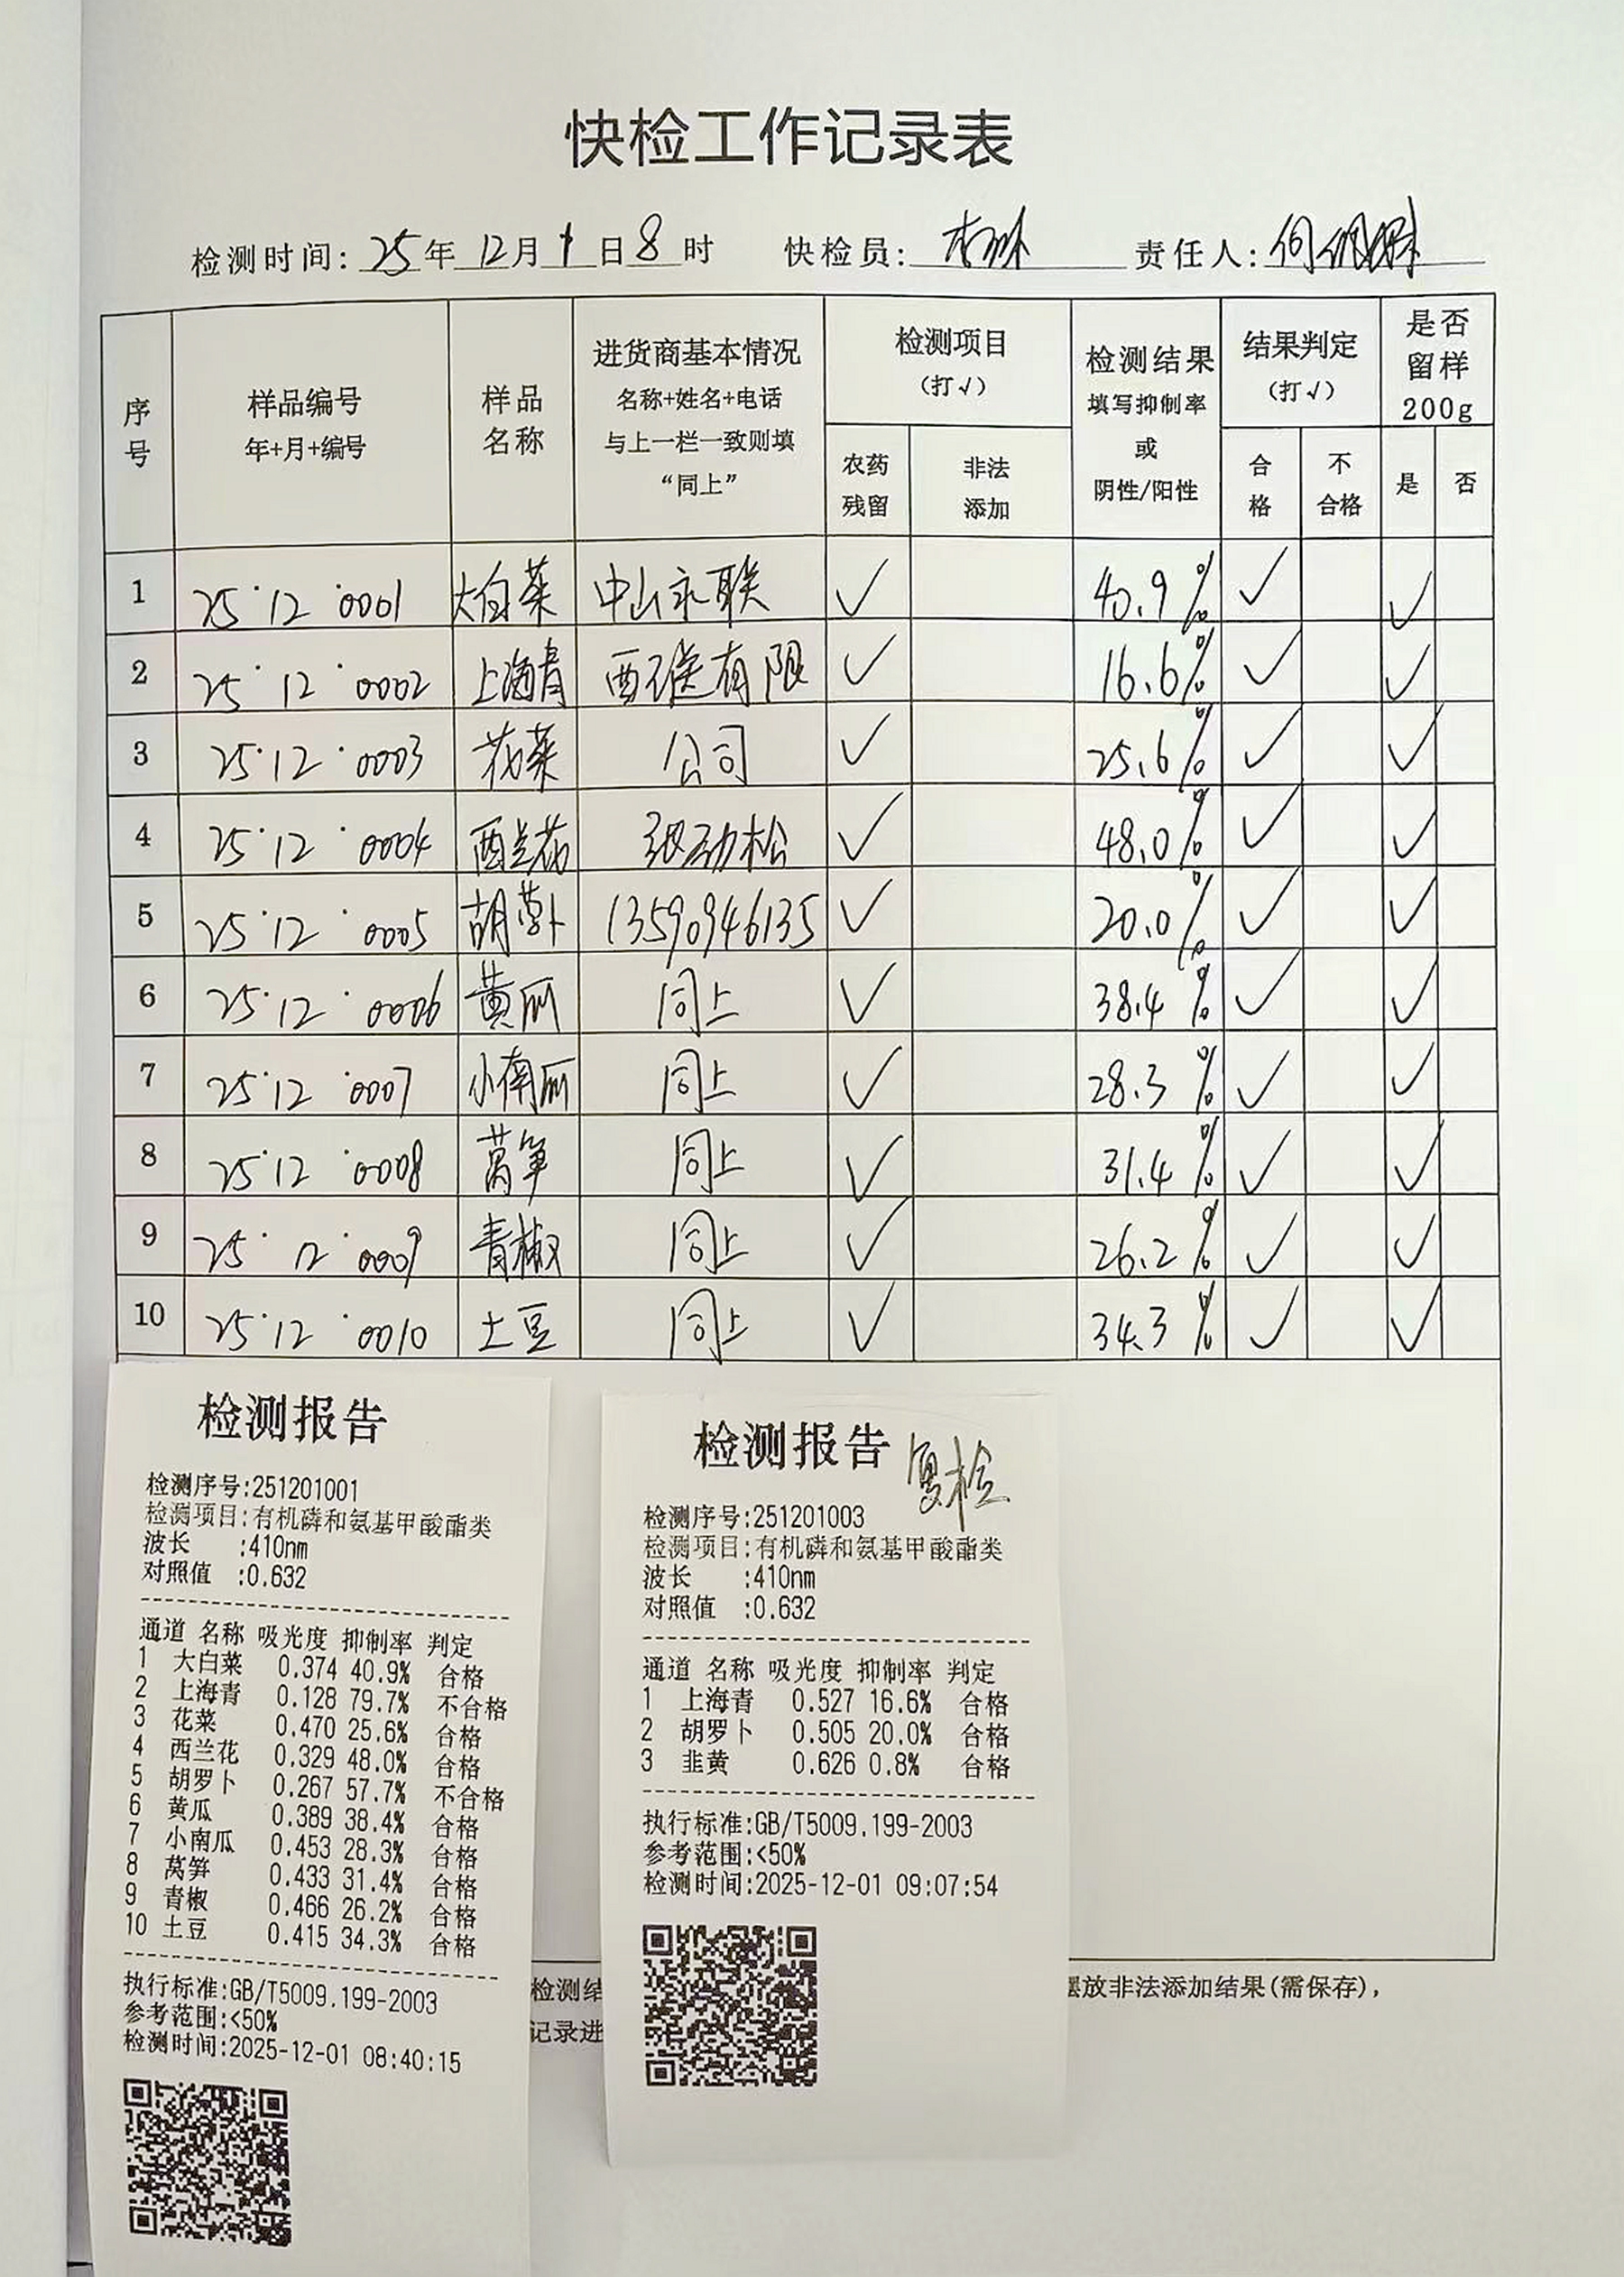 快检工作记录表
检测时间: 25年12月1日8时 快检员: 责任人: 何
序号 样品编号 年+月+编号 样品名称 进货商基本情况 名称+姓名+电话 与上一栏一致则填“同上” 检测项目(打√) 农药残留 非法添加 检测结果 填写抑制率 或 阴性/阳性 结果判定(打√) 合格 不合格 是否留样200g 是 否
1 25·12·0001 大白菜 中山永联 √ 40.9% √ √
2 25·12·0002 上海青 有限 √ 16.6% √ √
3 25·12·0003 花菜 公司 √ 25.6% √ √
4 25·12·0004 西兰花 张劲松 √ 48.0% √ √
5 25·12·0005 胡萝卜 13590946135 √ 20.0% √ √
6 25·12·0006 黄瓜 同上 √ 38.4% √ √
7 25·12·0007 小南瓜 同上 √ 28.3% √ √
8 25·12·0008 莴笋 同上 √ 31.4% √ √
9 25·12·0009 青椒 同上 √ 26.2% √ √
10 25·12·0010 土豆 同上 √ 34.3% √ √
检测报告
检测序号:251201001
检测项目:有机磷和氨基甲酸酯类
波长 :410nm
对照值 :0.632
通道 名称 吸光度 抑制率 判定
1 大白菜 0.374 40.9% 合格
2 上海青 0.128 79.7% 不合格
3 花菜 0.470 25.6% 合格
4 西兰花 0.329 48.0% 合格
5 胡罗卜 0.267 57.7% 不合格
6 黄瓜 0.389 38.4% 合格
7 小南瓜 0.453 28.3% 合格
8 莴笋 0.433 31.4% 合格
9 青椒 0.466 26.2% 合格
10 土豆 0.415 34.3% 合格
执行标准:GB/T5009.199-2003
参考范围:<50%
检测时间:2025-12-01 08:40:15
检测报告 复检
检测序号:251201003
检测项目:有机磷和氨基甲酸酯类
波长 :410nm
对照值 :0.632
通道 名称 吸光度 抑制率 判定
1 上海青 0.527 16.6% 合格
2 胡罗卜 0.505 20.0% 合格
3 韭黄 0.626 0.8% 合格
执行标准:GB/T5009.199-2003
参考范围:<50%
检测时间:2025-12-01 09:07:54
检测结 摆放非法添加结果(需保存),
记录进